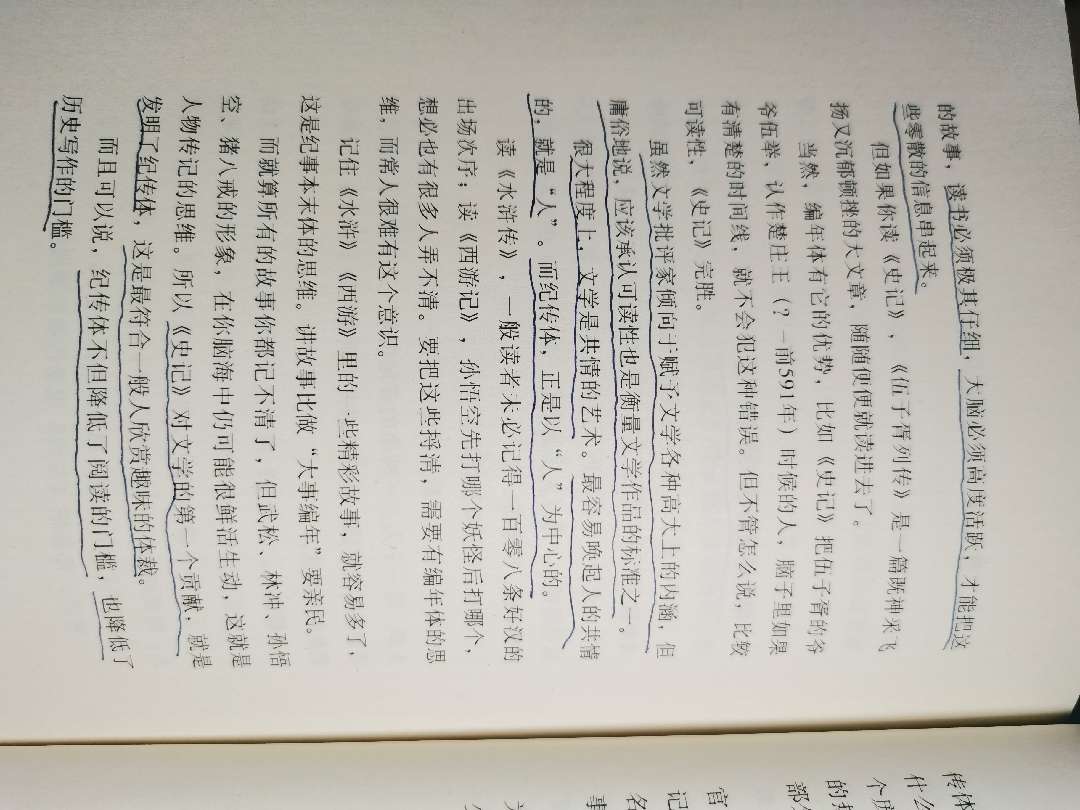 的故事，读书必须极其仔细，大脑必须高度活跃，才能把这
些零散的信息串起来。
但如果你读《史记》，《伍子胥列传》是一篇既神采飞
扬又沉郁顿挫的大文章，随随便便就读进去了。
当然，编年体有它的优势，比如《史记》把伍子胥的爷
爷伍举，认作楚庄王（？－前591年）时候的人，脑子里如果
有清楚的时间线，就不会犯这种错误。但不管怎么说，比较
可读性，《史记》完胜。
虽然文学批评家倾向于赋予文学各种高大上的内涵，但
庸俗地说，应该承认可读性也是衡量文学作品的标准之一。
很大程度上，文学是共情的艺术。最容易唤起人的共情
的，就是“人”。而纪传体，正是以“人”为中心的。
读《水浒传》，一般读者未必记得一百零八条好汉的
出场次序；读《西游记》，孙悟空先打哪个妖怪后打哪个，
想必也有很多人弄不清。要把这些捋清，需要有编年体的思
维，而常人很难有这个意识。
记住《水浒》《西游》里的一些精彩故事，就容易多了，
这是纪事本末体的思维。讲故事比做“大事编年”要亲民。
而就算所有的故事你都记不清了，但武松、林冲、孙悟
空、猪八戒的形象，在你脑海中仍可能很鲜活生动，这就是
人物传记的思维。所以《史记》对文学的第一个贡献，就是
发明了纪传体，这是最符合一般人欣赏趣味的体裁。
而且可以说，纪传体不但降低了阅读的门槛，也降低了
历史写作的门槛。
传体
什么
个
的
部
官
记
名
事